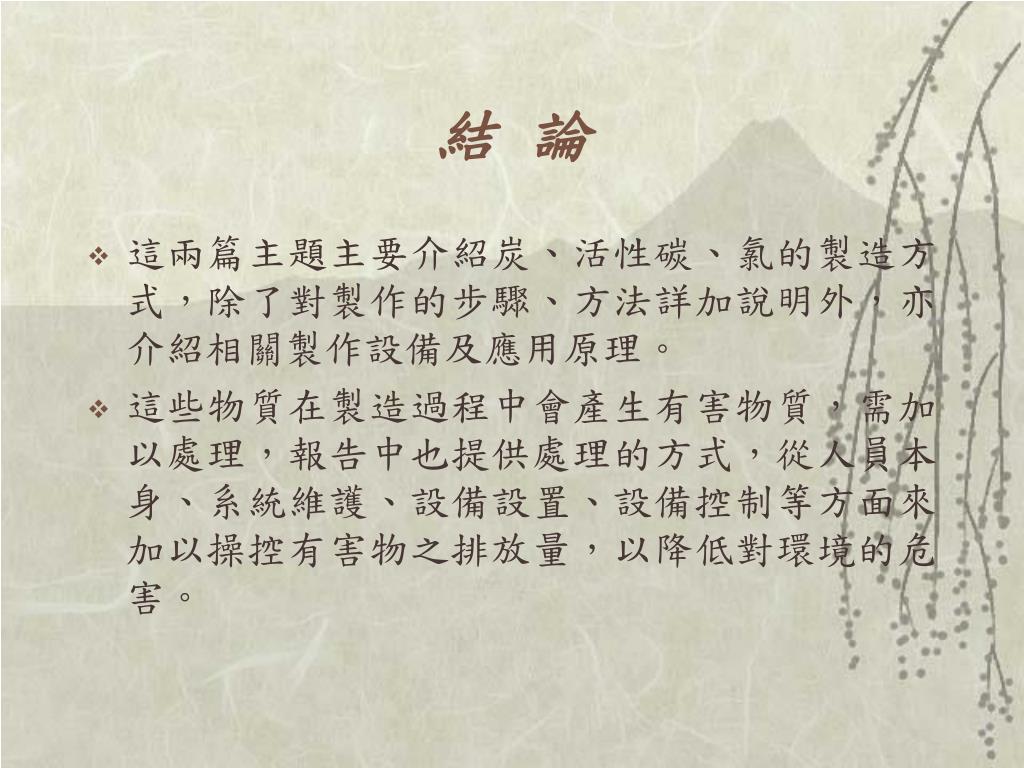 結 論
這兩篇主題主要介紹炭、活性碳、氯的製造方
式，除了對製作的步驟、方法詳加說明外，亦
介紹相關製作設備及應用原理。
這些物質在製造過程中會產生有害物質，需加
以處理，報告中也提供處理的方式，從人員本
身、系統維護、設備設置、設備控制等方面來
加以操控有害物之排放量，以降低對環境的危
害。